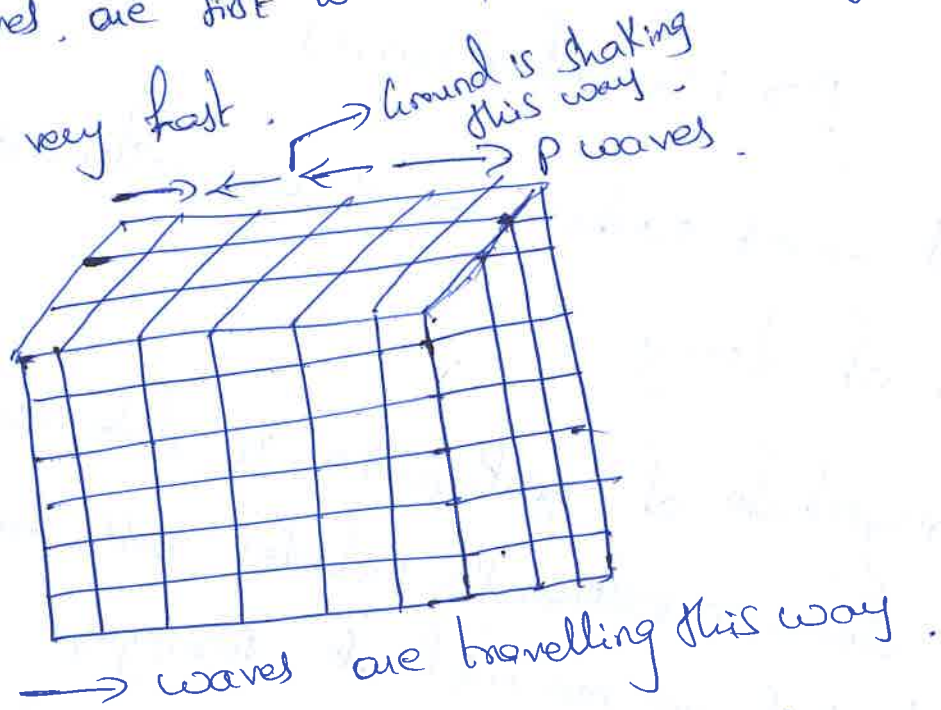 are first
very fast.
Ground is shaking
this way.
P waves.
waves are travelling this way.